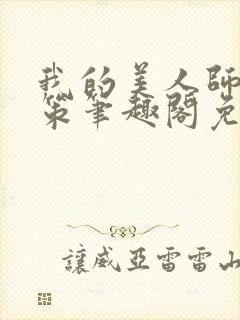 我的美人師
策筆趣閣免
讓威亞雷雷山